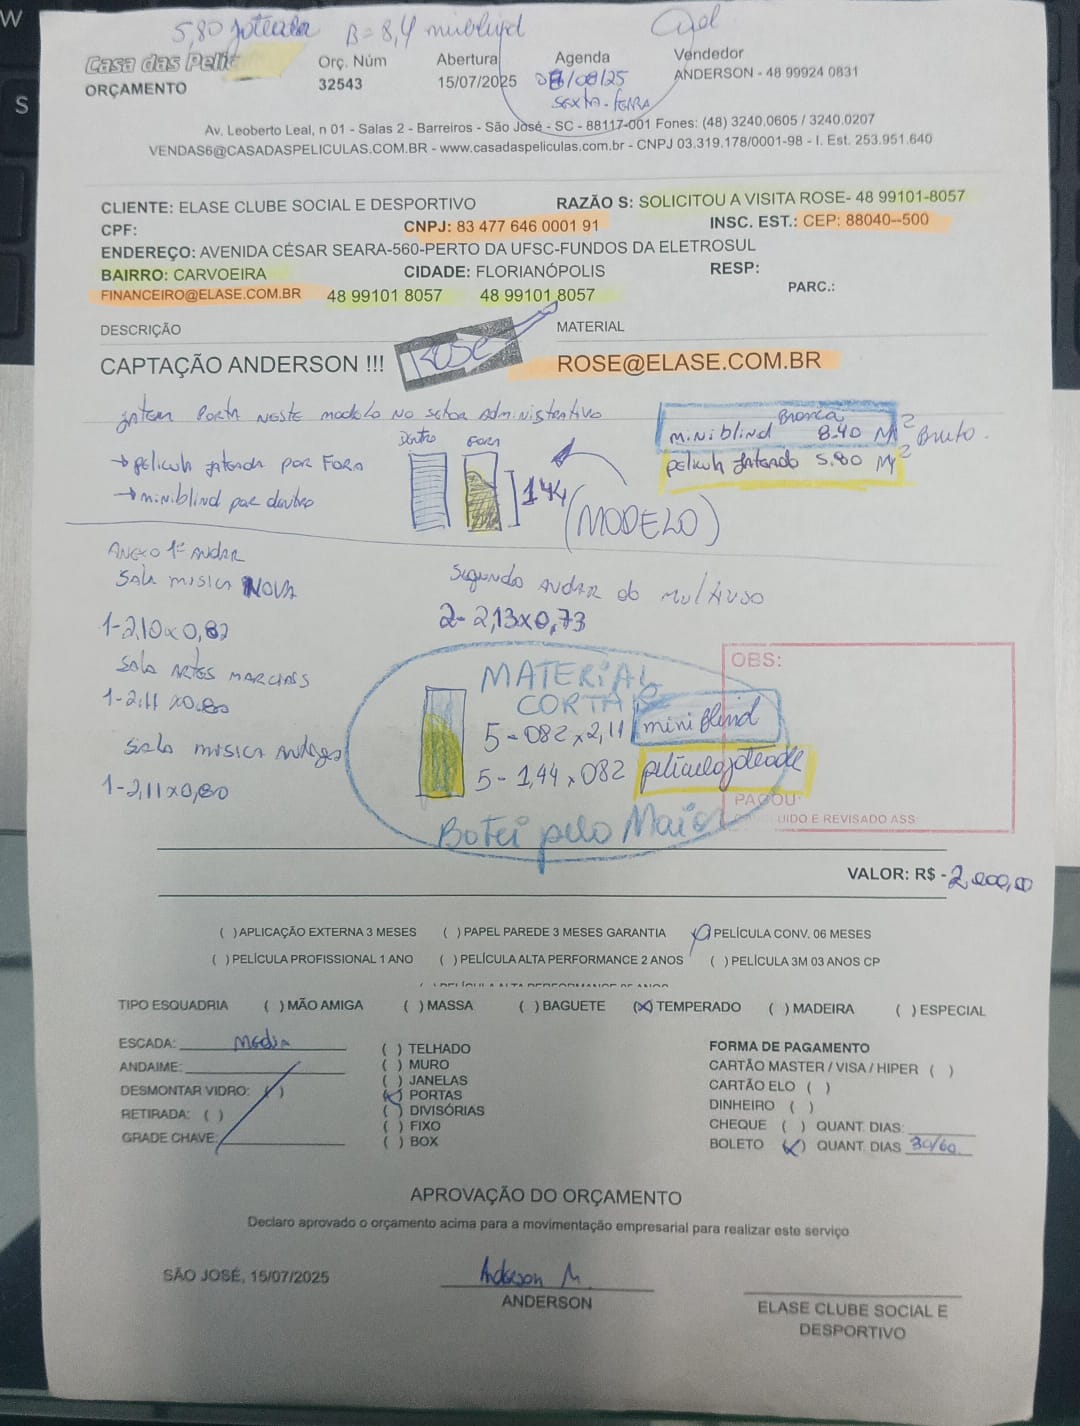 5,80 Joteada B= 8,4 miniblind
Casa das Pelic
ORÇAMENTO
Orç. Núm
32543
Abertura
15/07/2025
Agenda
/08/25
SEXTA-FEIRA
Vendedor
ANDERSON - 48 99924 0831
Av. Leoberto Leal, n 01 - Salas 2 - Barreiros - São José - SC - 88117-001 Fones: (48) 3240.0605 / 3240.0207
VENDAS6@CASADASPELICULAS.COM.BR - www.casadaspeliculas.com.br - CNPJ 03.319.178/0001-98 - I. Est. 253.951.640
CLIENTE: ELASE CLUBE SOCIAL E DESPORTIVO RAZÃO S: SOLICITOU A VISITA ROSE- 48 99101-8057
CPF: CNPJ: 83 477 646 0001 91 INSC. EST.: CEP: 88040--500
ENDEREÇO: AVENIDA CÉSAR SEARA-560-PERTO DA UFSC-FUNDOS DA ELETROSUL
BAIRRO: CARVOEIRA CIDADE: FLORIANÓPOLIS RESP:
FINANCEIRO@ELASE.COM.BR 48 99101 8057 48 99101 8057 PARC.:
DESCRIÇÃO MATERIAL
CAPTAÇÃO ANDERSON !!! ROSE ROSE@ELASE.COM.BR
Jatem PORTA NESTE modelo NO SETOR Administrativo
Branca
miniblind 8.40 M2 Bruto.
pelicula Jateado 5.80 M2
Dentro FORA
→ pelicula jateada por FORA
→ miniblind por dentro
144
(MODELO)
ANEXO 1º ANDAR
SALA musica NOVA
1-2,10x0,82
SALA ARTES MARCIAIS
1-2,11 x0,80
SALA musica Antiga
1-2,11x0,80
Segundo ANDAR do multiuso
2- 2,13x0,73
MATERIAL
CORTA
5 - 082 x 2,11 mini Blind
5 - 1,44 x 082 pelicula joteade
Botei pelo Maior
OBS:
PAGOU:
UIDO E REVISADO ASS:
VALOR: R$ - 2.000,00
( )APLICAÇÃO EXTERNA 3 MESES ( )PAPEL PAREDE 3 MESES GARANTIA ( )PELÍCULA CONV. 06 MESES
( )PELÍCULA PROFISSIONAL 1 ANO ( )PELÍCULA ALTA PERFORMANCE 2 ANOS ( )PELÍCULA 3M 03 ANOS CP
TIPO ESQUADRIA ( )MÃO AMIGA ( )MASSA ( )BAGUETE (X)TEMPERADO ( )MADEIRA ( )ESPECIAL
ESCADA: Media
ANDAIME:
DESMONTAR VIDRO: ( )
RETIRADA: ( )
GRADE CHAVE:
( ) TELHADO
( ) MURO
( ) JANELAS
(X) PORTAS
( ) DIVISÓRIAS
( ) FIXO
( ) BOX
FORMA DE PAGAMENTO
CARTÃO MASTER / VISA / HIPER ( )
CARTÃO ELO ( )
DINHEIRO ( )
CHEQUE ( ) QUANT. DIAS:
BOLETO (X) QUANT. DIAS 30/60
APROVAÇÃO DO ORÇAMENTO
Declaro aprovado o orçamento acima para a movimentação empresarial para realizar este serviço
SÃO JOSÉ, 15/07/2025
Anderson M.
ANDERSON
ELASE CLUBE SOCIAL E
DESPORTIVO